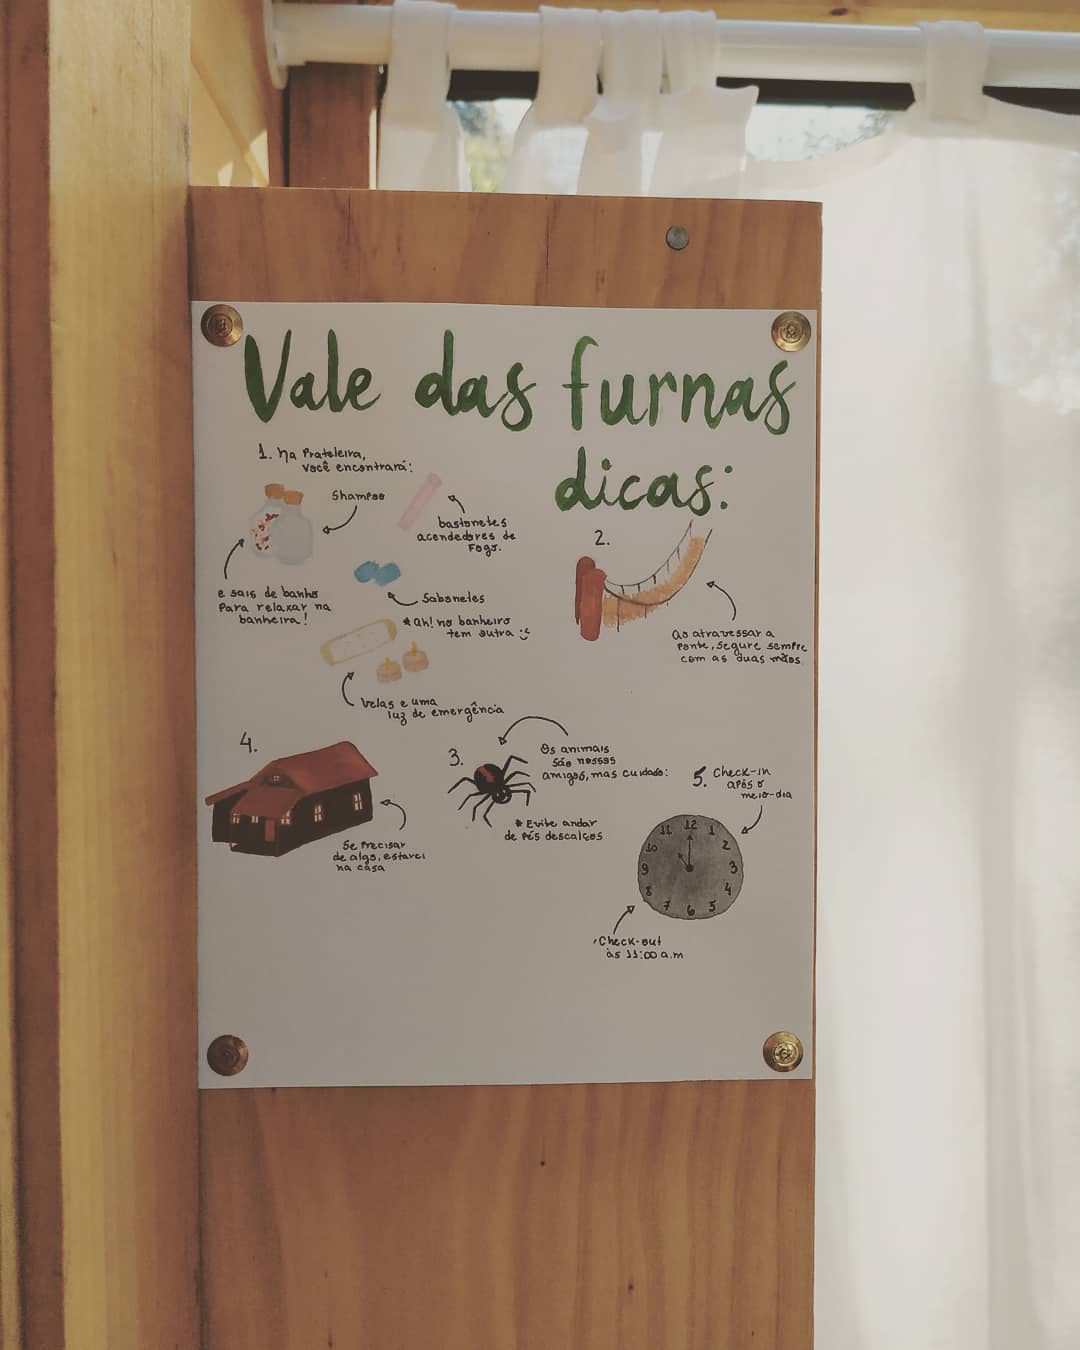 Vale das furnas
dicas:
1. Na Prateleira,
você encontrará:
Shampoo
bastonetes
acendedores de
Fogo.
e sais de banho
Para relaxar na
banheira!
Sabonetes
*Ah! no banheiro
tem outra :)
Velas e uma
luz de emergência
2.
Ao atravessar a
Ponte, segure sempre
com as duas mãos.
4.
Se Precisar
de algo, estarei
na casa
3.
Os animais
são nossos
amigos, mas cuidado:
* Evite andar
de Pés descalços
5. Check-in
após o
meio-dia
12
1
2
3
4
5
6
7
8
9
10
11
Check-out
às 11:00 a.m